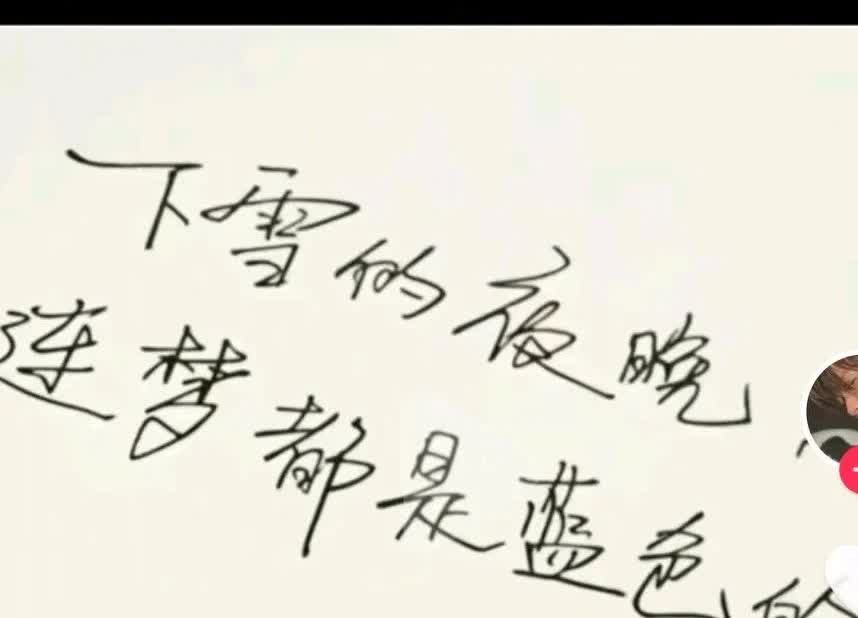 下雪的夜晚,
连梦都是蓝色的